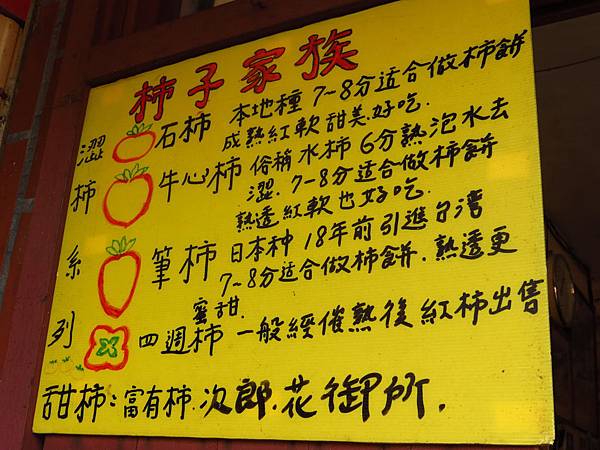 柿子家族
澀柿系列
石柿 本地種 7~8分适合做柿餅
成熟紅軟甜美.好吃.
牛心柿 俗稱水柿 6分熟泡水去
澀.7~8分适合做柿餅
熟透紅軟也好吃.
筆柿 日本种 18年前引進台湾
7~8分适合做柿餅.熟透更
蜜甜.
四週柿 一般經催熟後紅柿出售
甜柿:富有柿.次郎.花御所.